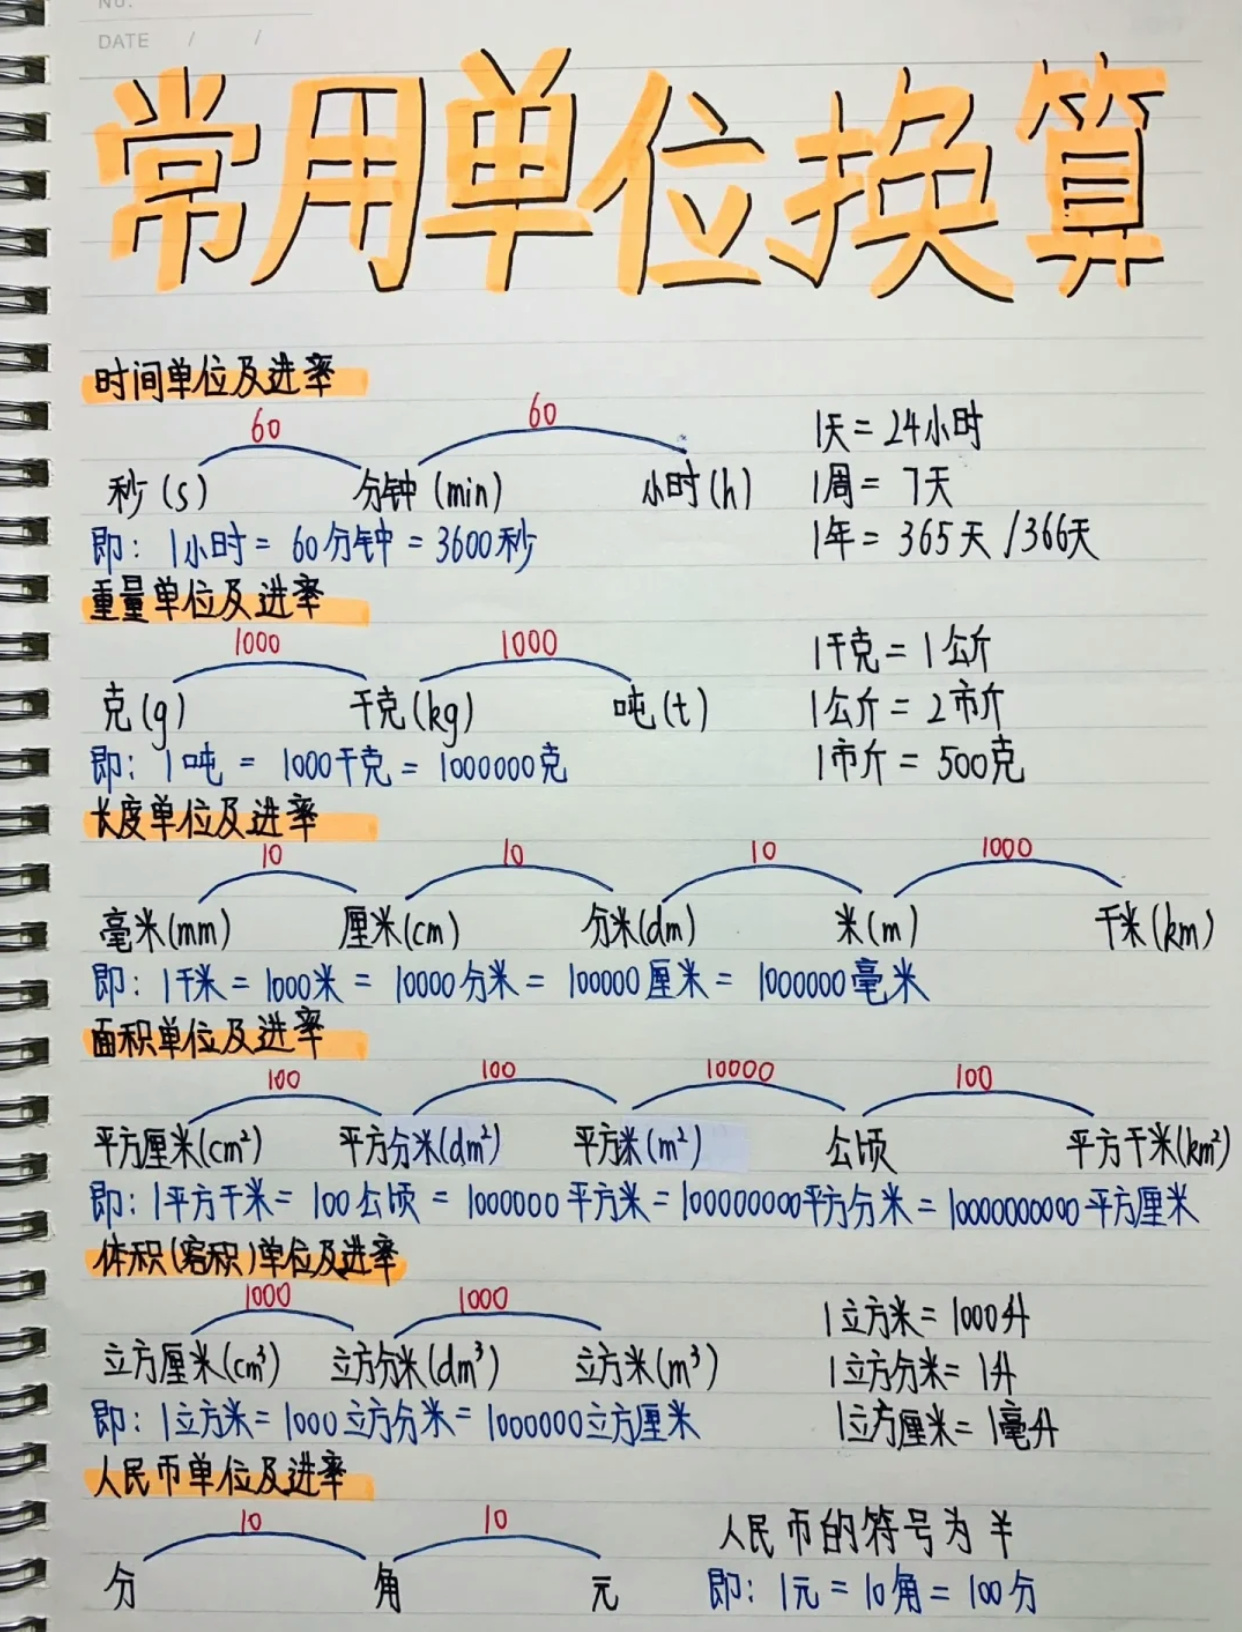 No.
DATE / /
常用单位换算
时间单位及进率
60 60
秒(s) 分钟(min) 小时(h)
即: 1小时 = 60分钟 = 3600秒
1天 = 24小时
1周 = 7天
1年 = 365天 /366天
重量单位及进率
1000 1000
克(g) 千克(kg) 吨(t)
即: 1吨 = 1000千克 = 1000000克
1千克 = 1公斤
1公斤 = 2市斤
1市斤 = 500克
长度单位及进率
10 10 10 1000
毫米(mm) 厘米(cm) 分米(dm) 米(m) 千米(km)
即: 1千米 = 1000米 = 10000分米 = 100000厘米 = 1000000毫米
面积单位及进率
100 100 10000 100
平方厘米(cm²) 平方分米(dm²) 平方米(m²) 公顷 平方千米(km²)
即: 1平方千米 = 100公顷 = 1000000平方米 = 100000000平方分米 = 10000000000平方厘米
体积(容积)单位及进率
1000 1000
立方厘米(cm³) 立方分米(dm³) 立方米(m³)
即: 1立方米 = 1000立方分米 = 1000000立方厘米
1立方米 = 1000升
1立方分米 = 1升
1立方厘米 = 1毫升
人民币单位及进率
10 10
分 角 元
人民币的符号为¥
即: 1元 = 10角 = 100分